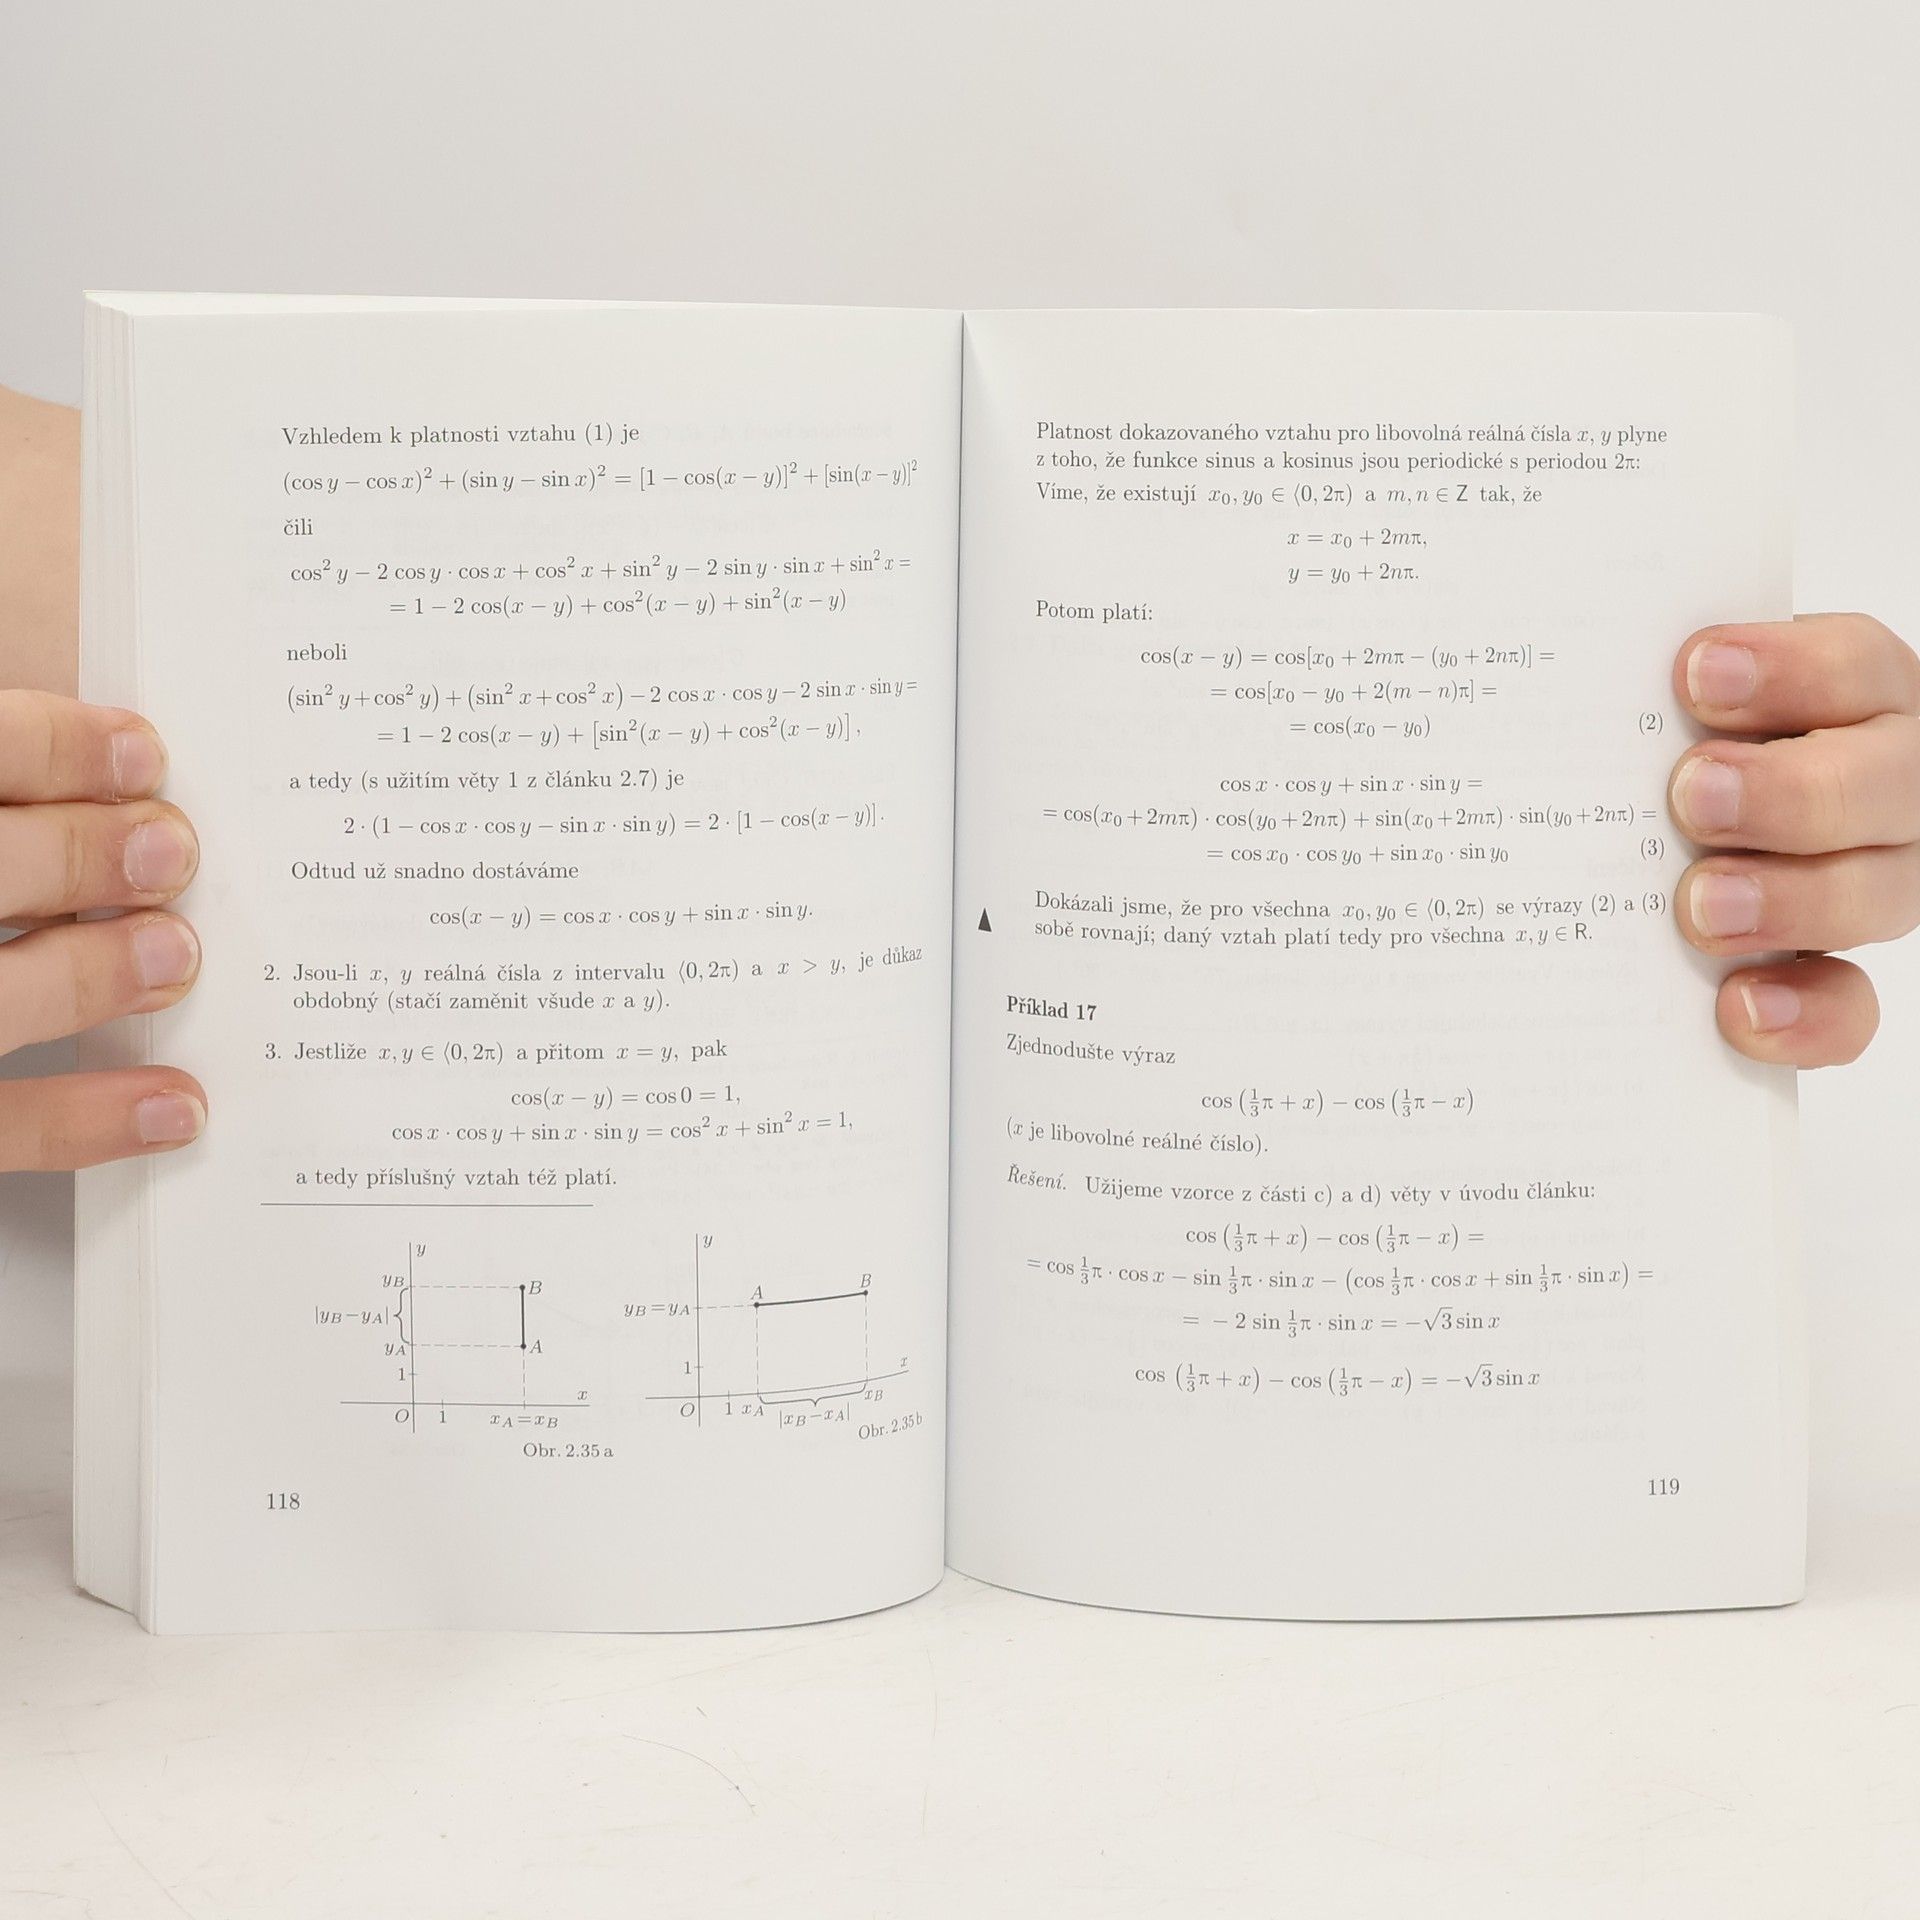 Vzhledem k platnosti vztahu (1) je
(cos y − cos x)² + (sin y − sin x)² = [1 − cos(x − y)]² + [sin(x − y)]²
čili
cos² y − 2 cos y · cos x + cos² x + sin² y − 2 sin y · sin x + sin² x =
= 1 − 2 cos(x − y) + cos²(x − y) + sin²(x − y)
neboli
(sin² y + cos² y) + (sin² x + cos² x) − 2 cos x · cos y − 2 sin x · sin y =
= 1 − 2 cos(x − y) + [sin²(x − y) + cos²(x − y)],
a tedy (s užitím věty 1 z článku 2.7) je
2 · (1 − cos x · cos y − sin x · sin y) = 2 · [1 − cos(x − y)].
Odtud už snadno dostáváme
cos(x − y) = cos x · cos y + sin x · sin y.
2. Jsou-li x, y reálná čísla z intervalu ⟨0, 2π) a x > y, je důkaz
obdobný (stačí zaměnit všude x a y).
3. Jestliže x, y ∈ ⟨0, 2π) a přitom x = y, pak
cos(x − y) = cos 0 = 1,
cos x · cos y + sin x · sin y = cos² x + sin² x = 1,
a tedy příslušný vztah též platí.
y
y_B
B
|y_B − y_A|
y_A
A
1
x
O
1
x_A = x_B
Obr. 2.35 a
y
A
B
y_B = y_A
1
x
O
1
x_A
x_B
|x_B − x_A|
Obr. 2.35 b
118
Platnost dokazovaného vztahu pro libovolná reálná čísla x, y plyne
z toho, že funkce sinus a kosinus jsou periodické s periodou 2π:
Víme, že existují x₀, y₀ ∈ ⟨0, 2π) a m, n ∈ Z tak, že
x = x₀ + 2mπ,
y = y₀ + 2nπ.
Potom platí:
cos(x − y) = cos[x₀ + 2mπ − (y₀ + 2nπ)] =
= cos[x₀ − y₀ + 2(m − n)π] =
= cos(x₀ − y₀) (2)
cos x · cos y + sin x · sin y =
= cos(x₀ + 2mπ) · cos(y₀ + 2nπ) + sin(x₀ + 2mπ) · sin(y₀ + 2nπ) =
= cos x₀ · cos y₀ + sin x₀ · sin y₀ (3)
Dokázali jsme, že pro všechna x₀, y₀ ∈ ⟨0, 2π) se výrazy (2) a (3)
sobě rovnají; daný vztah platí tedy pro všechna x, y ∈ R.
Příklad 17
Zjednodušte výraz
cos (⅓π + x) − cos (⅓π − x)
(x je libovolné reálné číslo).
Řešení. Užijeme vzorce z části c) a d) věty v úvodu článku:
cos (⅓π + x) − cos (⅓π − x) =
= cos ⅓π · cos x − sin ⅓π · sin x − (cos ⅓π · cos x + sin ⅓π · sin x) =
= − 2 sin ⅓π · sin x = −√3 sin x
cos (⅓π + x) − cos (⅓π − x) = −√3 sin x
119